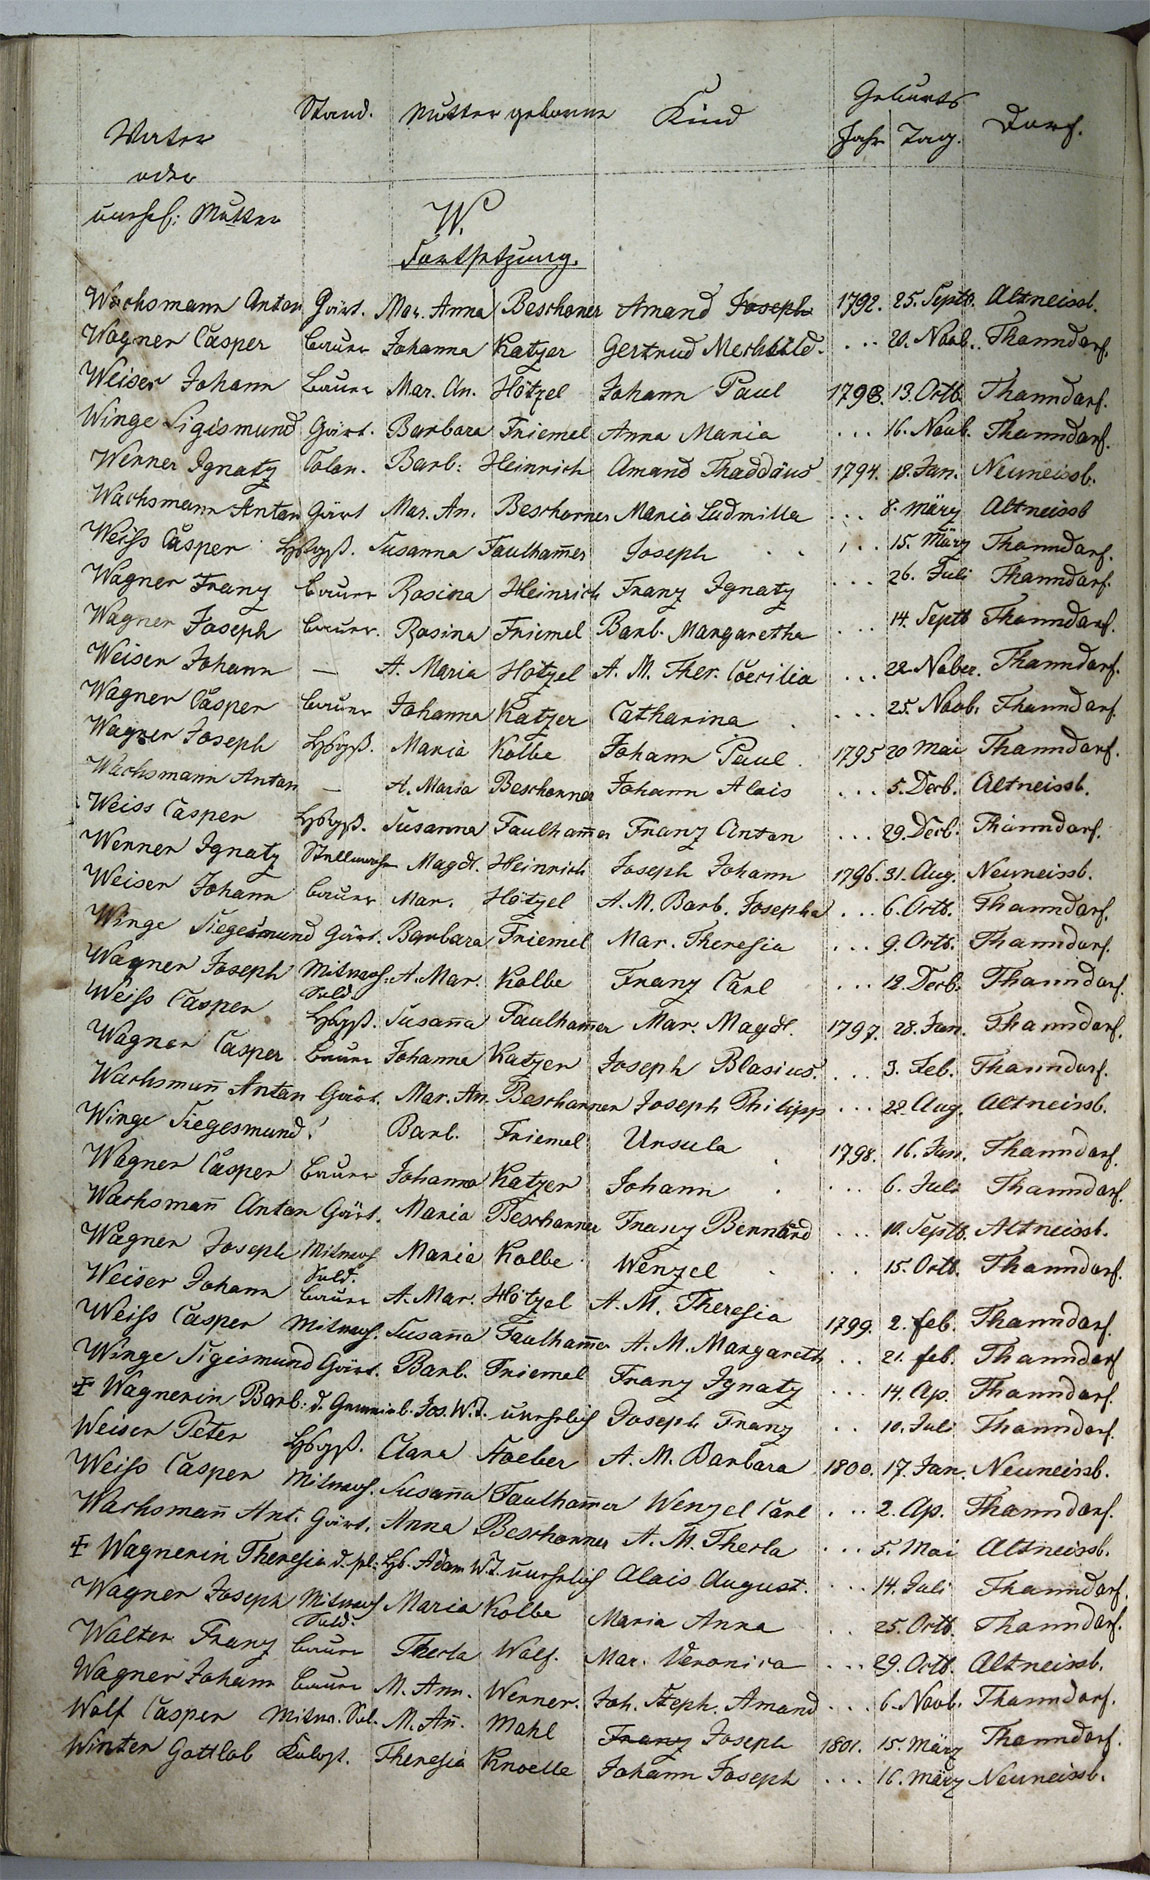 Vater Stand. Mutter geborne Kind Geburts Dorf.
oder Jahr Tag.
unehel: Mutter
W.
Fortsetzung.
Wachsmann Anton Gärt. Mar. Anna Beschorner Amand Joseph 1792. 25. Septb. Altneissb.
Wagner Casper Bauer Johanna Katzer Gertrud Mechtild. ... 20. Novb. Thanndorf.
Weiser Johann Bauer Mar. An. Hötzel Johann Paul 1793. 13. Octb. Thanndorf.
Winge Sigismund Gärt. Barbara Friemel Anna Maria ... 16. Novb. Thanndorf.
Werner Ignatz Colon. Barb: Heinrich Amand Thaddäus 1794. 18. Jan. Neuneissb.
Wachsmann Anton Gärt Mar. An. Beschorner Maria Ludmilla ... 8. März Altneissb
Weiss Casper Susanna Faulham̅er Joseph ... 15. März Thanndorf.
Wagner Franz Bauer Rosina Heinrich Franz Ignatz ... 26. Juli Thanndorf.
Wagner Joseph Bauer. Rosina Friemel Barb. Margaretha ... 14. Septb Thanndorf.
Weiser Johann — A. Maria Hötzel A. M. Ther. Coecilia ... 22. Nober. Thanndorf.
Wagner Casper Bauer Johanna Katzer Catharina ... 25. Novb. Thanndorf.
Wagner Joseph Maria Kolbe Johann Paul. 1795 20 Mai Thanndorf.
Wachsmann Anton — A. Maria Beschorner Johann Alois ... 5. Decb. Altneissb.
Weiss Casper Susanna Faulham̅er Franz Anton ... 29. Decb. Thanndorf.
Werner Ignatz Magdl. Heinrich Joseph Johann 1796. 31. Aug. Neuneissb.
Weiser Johann Bauer Mar. Hötzel A. M. Barb. Josepha ... 6. Octb. Thanndorf.
Winge Siegesmund Gärt. Barbara Friemel Mar. Theresia ... 9. Octb. Thanndorf.
Wagner Joseph A. Mar. Kolbe Franz Carl ... 12. Decb. Thanndorf.
Weiss Casper Susan̅a Faulham̅er Mar. Magdl. 1797. 28. Jan. Thanndorf.
Wagner Casper Bauer Johanna Katzer Joseph Blasius. ... 3. Feb. Thanndorf.
Wachsman̅ Anton Gärt. Mar. An. Beschorner Joseph Philipp ... 22. Aug. Altneissb.
Winge Siegesmund. Barb. Friemel Ursula 1798. 16. Jan. Thanndorf.
Wagner Casper Bauer Johanna Katzer Johann ... 6. Juli Thanndorf.
Wachsman̅ Anton Gärt. Maria Beschorner Franz Bernhard ... 10. Septb. Altneissb.
Wagner Joseph Maria Kolbe Wenzel ... 15. Octb. Thanndorf.
Weiser Johann Bauer A. Mar. Hötzel A. M. Theresia 1799. 2. Feb. Thanndorf.
Weiss Casper Susan̅a Faulham̅er A. M. Margareth ... 21. feb. Thanndorf.
Winge Sigismund Gärt. Barb. Friemel Franz Ignatz ... 14. Ap. Thanndorf.
Wagnerin Barb: d. Jos. W. T. unehelich Joseph Franz .. 10. Juli Thanndorf.
Weiser Peter Clara A. M. Barbara 1800. 17. Jan. Neuneissb.
Weiss Casper Susan̅a Faulham̅er Wenzel Carl ... 2. Ap. Thanndorf.
Wachsman̅ Ant. Gärt. Anna Beschorner A. M. Thecla ... 5. Mai Altneissb.
Wagnerin Theresia d. Adam W. T. unehelich Alois August. ... 14. Juli Thanndorf.
Wagner Joseph Maria Kolbe Maria Anna .. 25. Octb. Thanndorf.
Walter Franz Bauer Thecla Wolf. Mar. Veronica ... 29. Octb. Altneissb.
Wagner Johann Bauer M. Ann. Werner. Joh. Steph. Amand ... 6. Novb. Thanndorf.
Wolf Casper M. An̅. Mahl Franz Joseph 1801. 15. März Thanndorf.
Winter Gottlob Theresia Knoelle Johann Joseph ... 16. März Neuneissb.